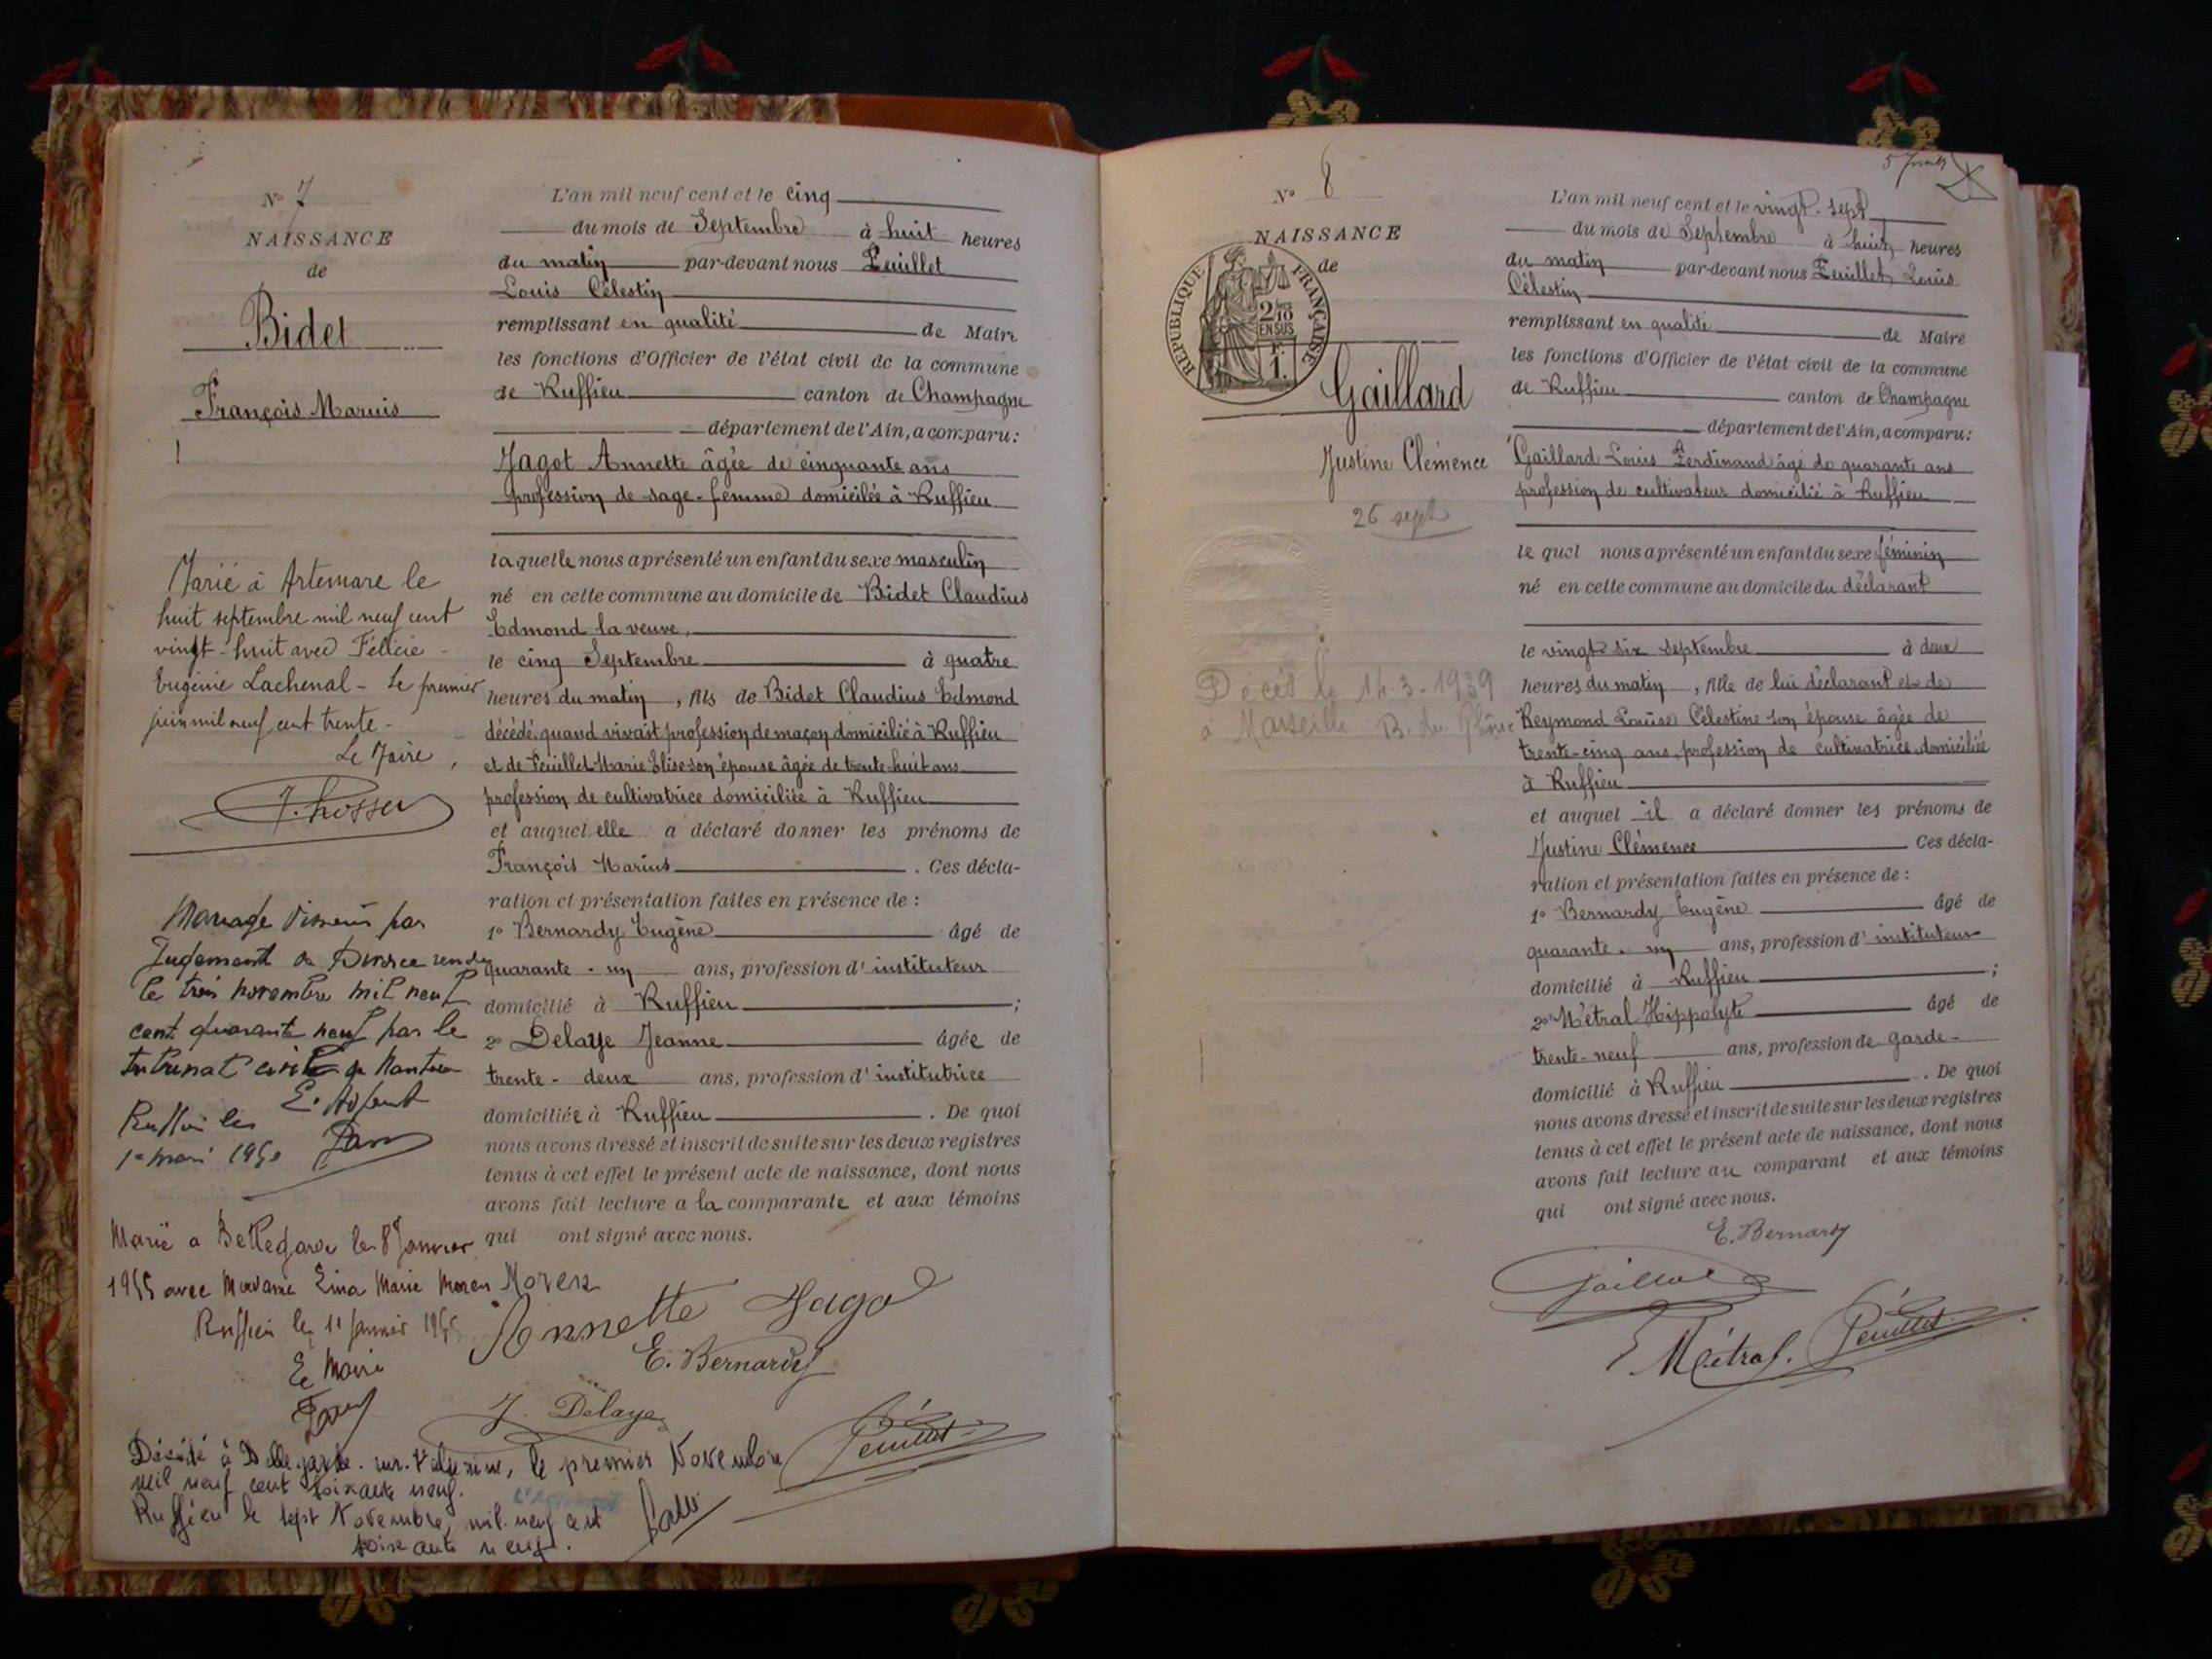 N° 7
NAISSANCE
de
Bidet
François Marius
L'an mil neuf cent et le cinq
du mois de Septembre à huit heures
du matin par-devant nous Feuillet
Louis Célestin
remplissant en qualité de Maire
les fonctions d'Officier de l'état civil de la commune
de Ruffieu canton de Champagne
département de l'Ain, a comparu :
Jagot Annette âgée de cinquante ans
profession de sage-femme domicilée à Ruffieu
laquelle nous a présenté un enfant du sexe masculin
né en cette commune au domicile de Bidet Claudius
Edmond la veuve,
le cinq Septembre à quatre
heures du matin, fils de Bidet Claudius Edmond
décédé, quand vivait profession de maçon domicilié à Ruffieu
et de Feuillet Marie Elise son épouse âgée de trente-huit ans
profession de cultivatrice domiciliée à Ruffieu
et auquel elle a déclaré donner les prénoms de
François Marius. Ces décla-
ration et présentation faites en présence de :
1° Bernardy Eugène âgé de
quarante-un ans, profession d'instituteur
domicilié à Ruffieu ;
2° Delaye Jeanne âgée de
trente-deux ans, profession d'institutrice
domiciliée à Ruffieu. De quoi
nous avons dressé et inscrit de suite sur les deux registres
tenus à cet effet le présent acte de naissance, dont nous
avons fait lecture a la comparante et aux témoins
qui ont signé avec nous.
Annette Jagot
E. Bernardy
J. Delaye
Feuillet
Marié à Artemare le
huit septembre mil neuf cent
vingt-huit avec Félicie
Eugénie Lachenal - Le premier
juin mil neuf cent trente -
Le Maire,
Mariage dissous par
Jugement de Divorce rendu
le trois novembre mil neuf
cent quarante neuf par le
tribunal civil de Nantua
Ruffieu les
1950
Marié a Bellegarde les 8 Janvier
1955 avec Madame Lina Marie Moren Moren
Ruffieu le 11 Janvier 1955
Le Maire
Décédé à Bellegarde-sur-Valserine, le premier Novembre
mil neuf cent soixante neuf.
Ruffieu le sept Novembre, mil neuf cent
soixante neuf.
N° 8
NAISSANCE
de
RÉPUBLIQUE FRANÇAISE
2/10
EN SUS
F.
1.
Gaillard
Justine Clémence
26 sept
Décès le 14-3-1939
à Marseille B. du Rhône
L'an mil neuf cent et le vingt-sept
du mois de Septembre à huit heures
du matin par-devant nous Feuillet Louis
Célestin
remplissant en qualité de Maire
les fonctions d'Officier de l'état civil de la commune
de Ruffieu canton de Champagne
département de l'Ain, a comparu :
Gaillard Louis Ferdinand âgé de quarante ans
profession de cultivateur domicilié à Ruffieu
le quel nous a présenté un enfant du sexe féminin
né en cette commune au domicile du déclarant
le vingt six septembre à deux
heures du matin, fille de lui déclarant et de
Reymond Louise Célestine son épouse âgée de
trente-cinq ans, profession de cultivatrice domiciliée
à Ruffieu
et auquel il a déclaré donner les prénoms de
Justine Clémence Ces décla-
ration et présentation faites en présence de :
1° Bernardy Eugène âgé de
quarante-un ans, profession d'instituteur
domicilié à Ruffieu ;
2° Métral Hippolyte âgé de
trente-neuf ans, profession de garde-
domicilié à Ruffieu. De quoi
nous avons dressé et inscrit de suite sur les deux registres
tenus à cet effet le présent acte de naissance, dont nous
avons fait lecture au comparant et aux témoins
qui ont signé avec nous.
E. Bernardy
Gaillard
Métral.
Feuillet